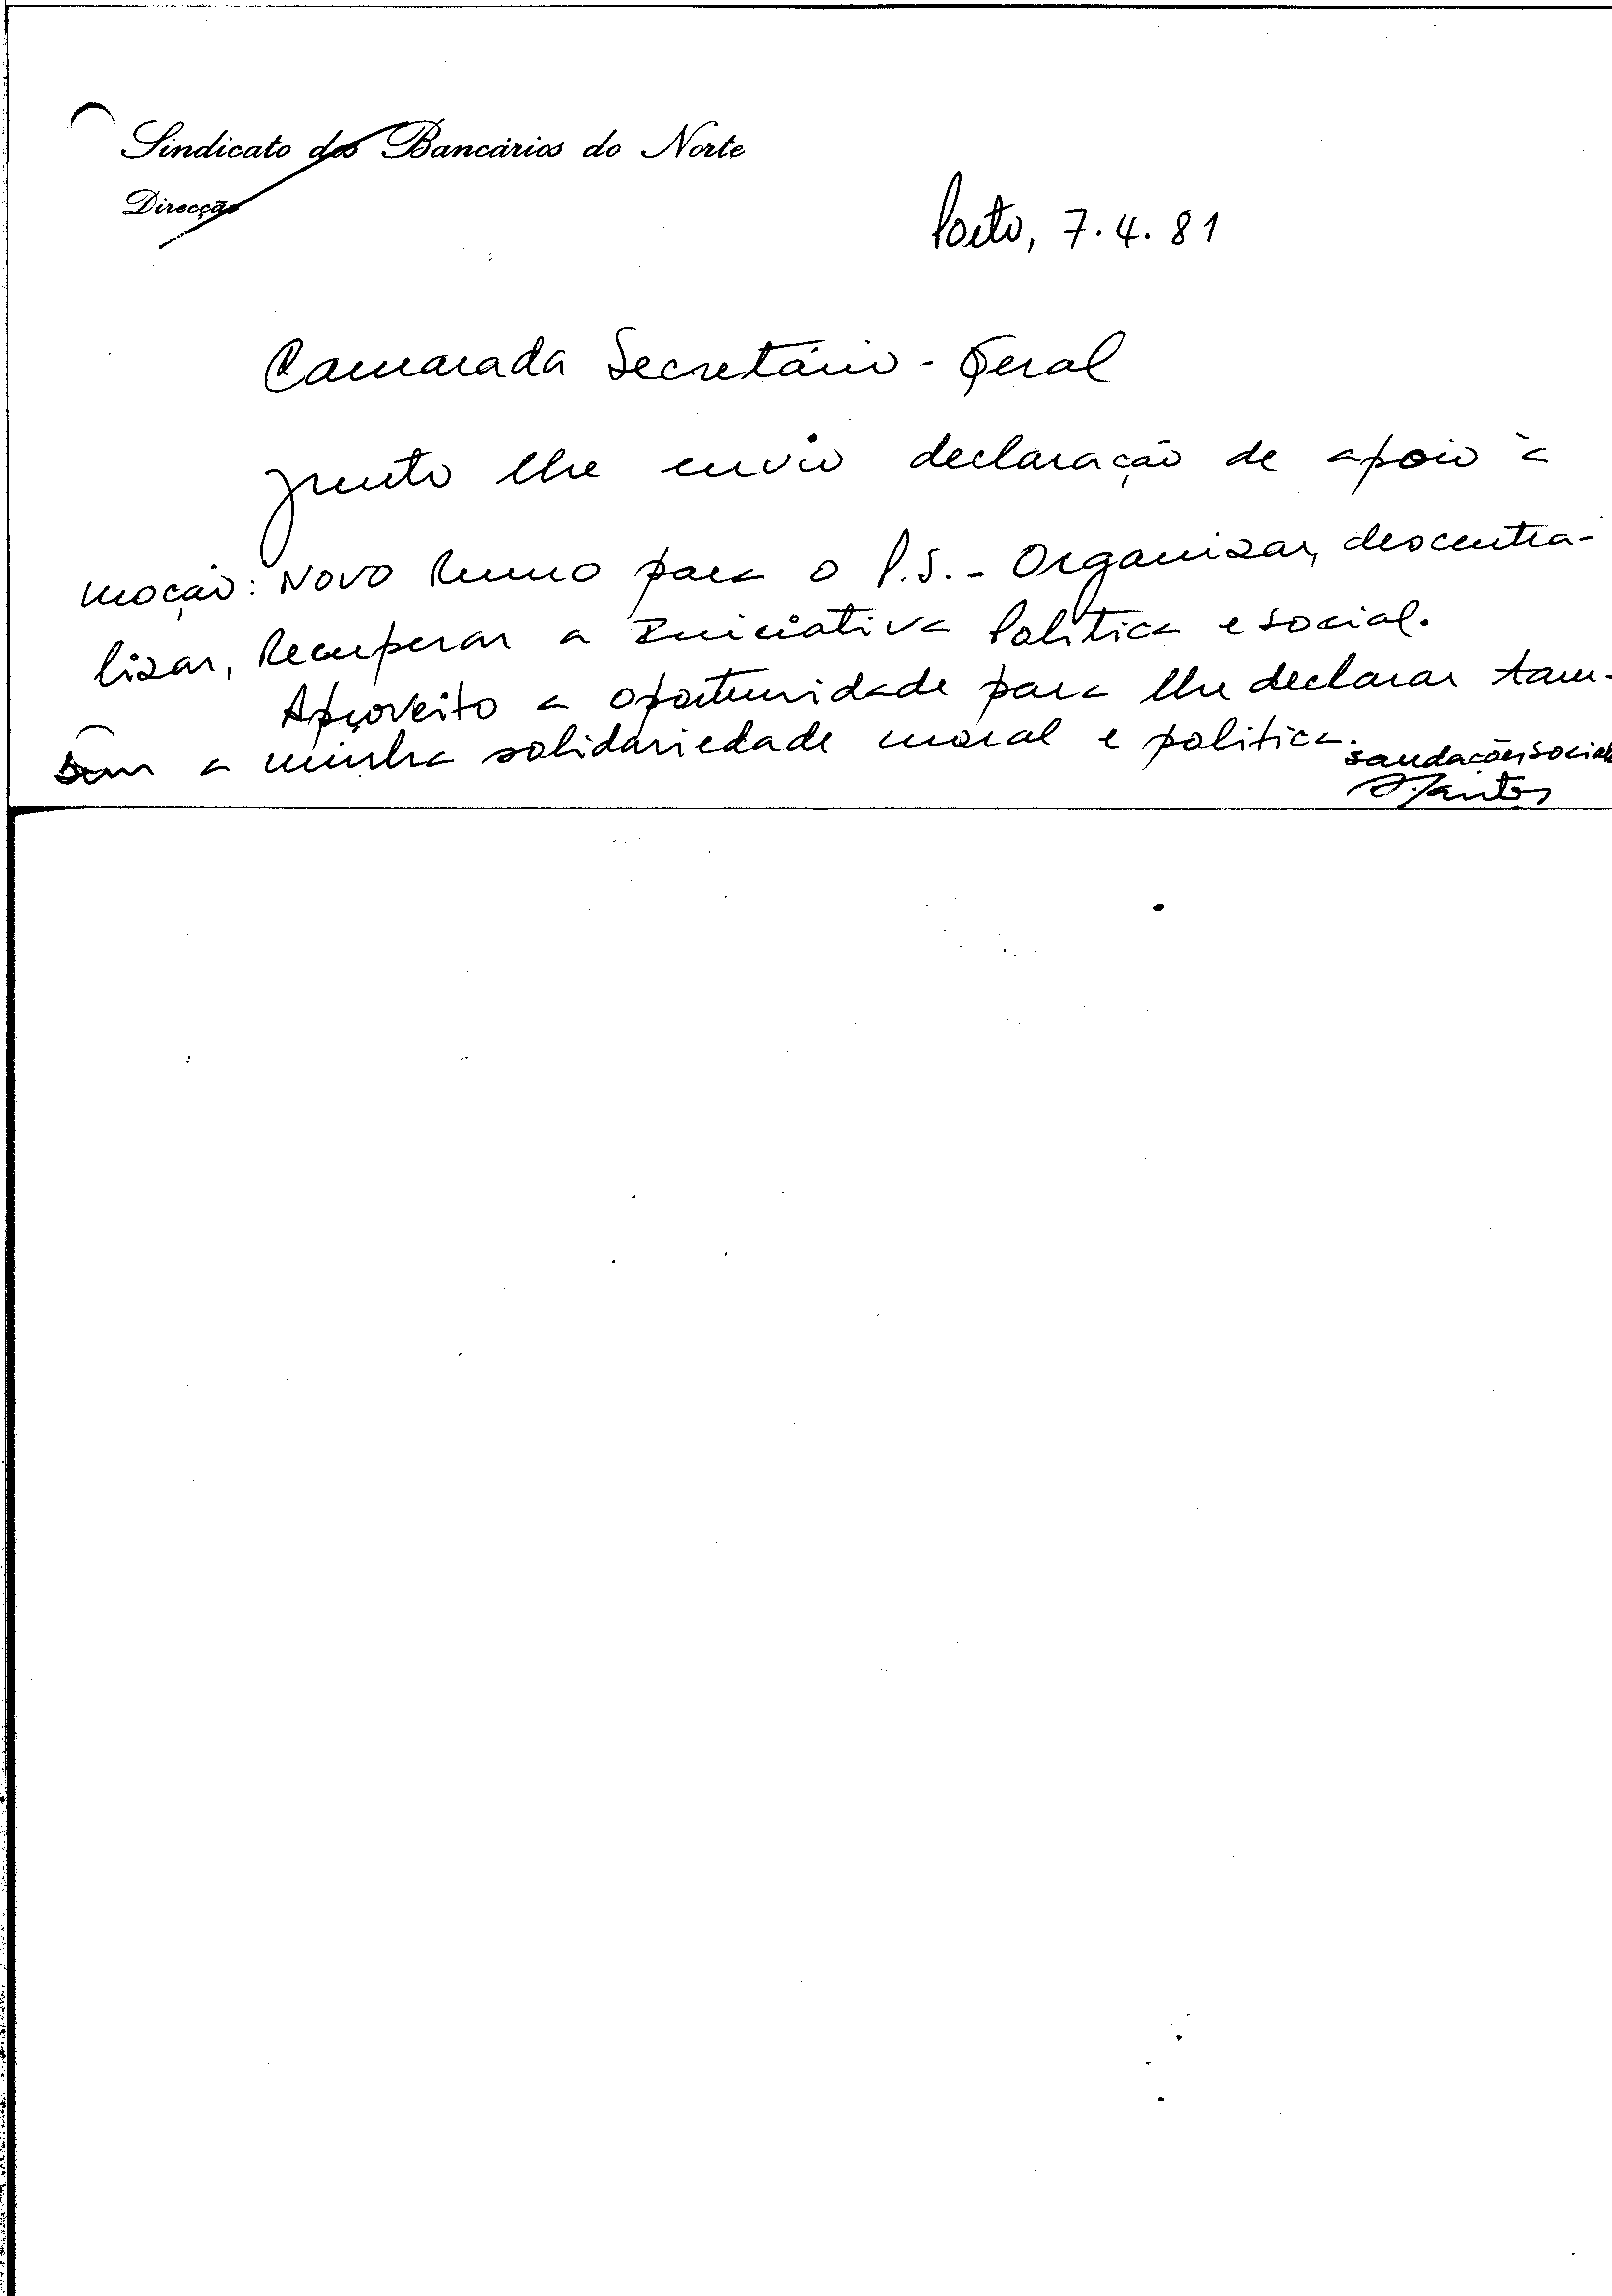 Sindicato dos Bancários do Norte
Direcção
Porto, 7.4.81
Camarada Secretário-Geral
Junto lhe envio declaração de apoio à
moção: Novo Rumo para o P.S. - Organizar, descentra-
lizar, Recuperar a Iniciativa Política e social.
Aproveito a oportunidade para lhe declarar tam-
bém a minha solidariedade moral e politica.
saudações sociali
Santos